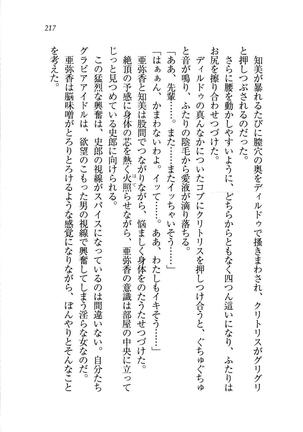 217
知美が暴れるたびに膣穴の奥をディルドゥで掻きまわされ、クリトリスがグリグリ
と押しつぶされるのだった。
さらに腰を動かしやすいように、どちらからともなく四つん這いになり、ふたりは
お尻を擦り合わせつづけた。
ディルドゥの真んなかについたコブにクリトリスを押しつけ合うと、ぐちゅぐちゅ
と音が鳴り、ふたりの陰毛から愛液が滴り落ちる。
「ああ、先輩……。また……またイッちゃいそう……」
「はぁぁん、かまわないわよ。イッて……。ああ、わたしもイキそう……」
亜弥香と知美は股間でつながりながら、悩ましく身体をのたうたせつづけた。
絶頂の予感に身体の芯を熱く火照らせながら、亜弥香の意識は部屋の中央に立って
じっと見つめている史郎に向けられる。
この猛烈な興奮は、史郎の視線がスパイスになっているのは間違いない。自分たち
グラビアアイドルは、欲望のこもった男の視線で興奮してしまう淫らな女なのだ。
亜弥香は脳味噌がとろりとろけるような感覚になりながら、ぼんやりとそんなこと
を考えた。